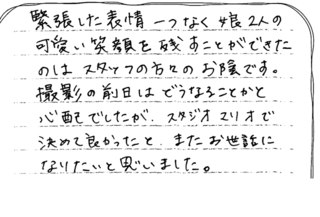 緊張した表情一つなく娘2人の
可愛い笑顔を残すことができた
のはスタッフの方々のお陰です。
撮影の前日はどうなることかと
心配でしたが、スタジオマリオで
決めて良かったと、またお世話に
なりたいと思いました。